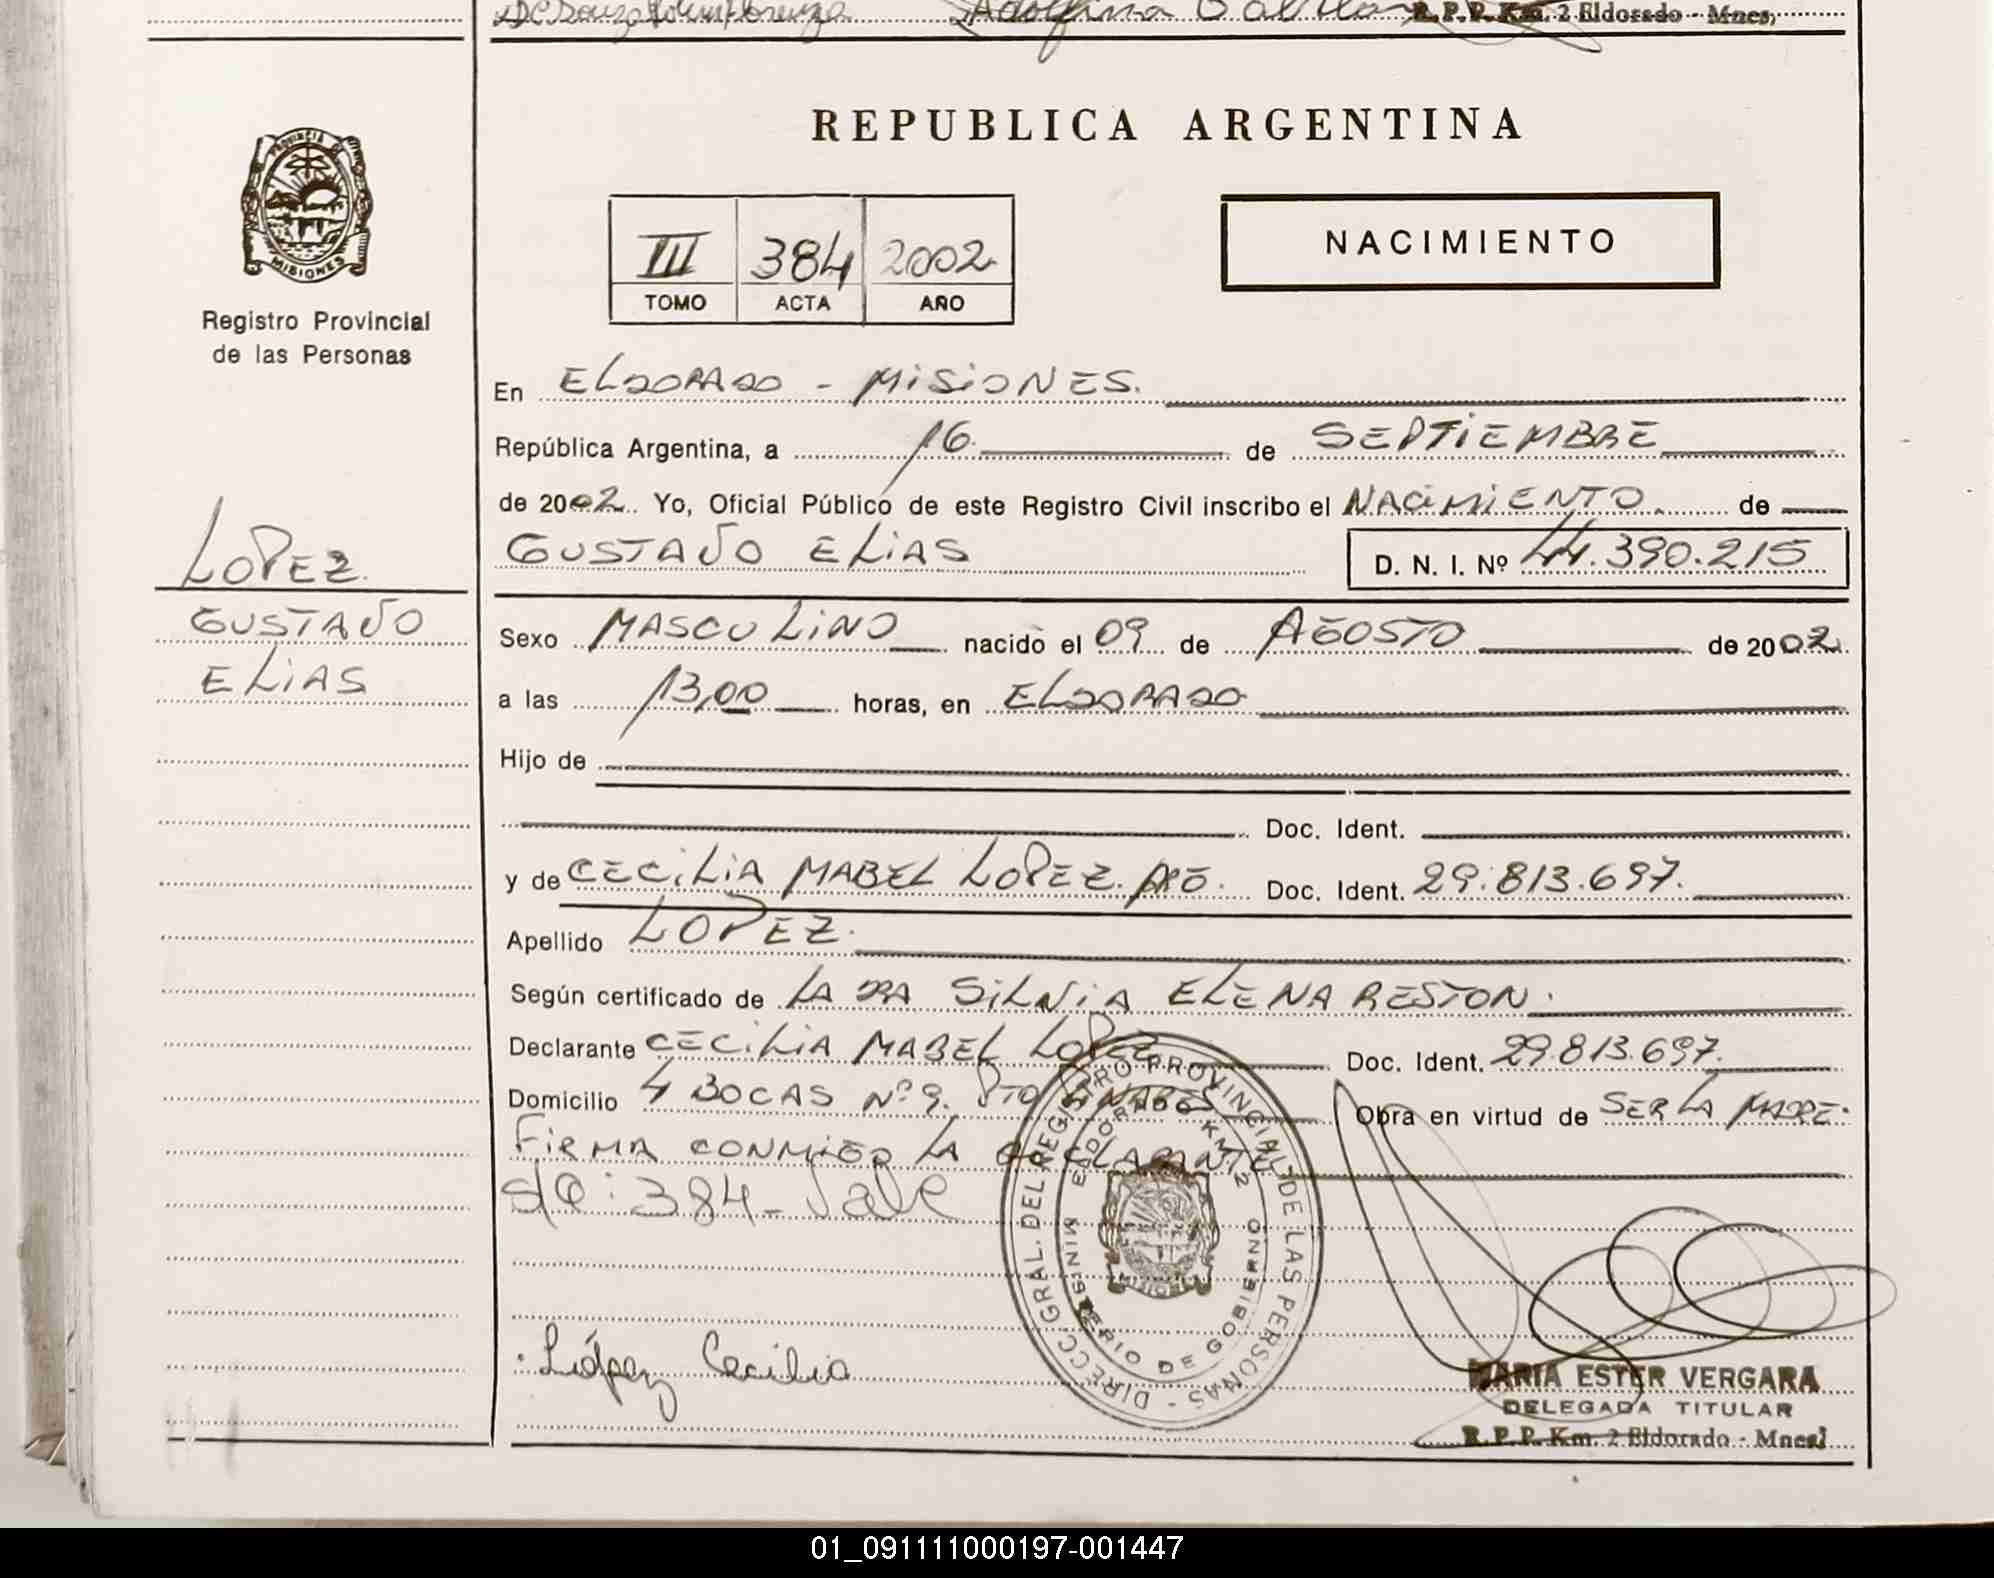 Adolfina
R. P. P. Km. 2 Eldorado - Mnes,
REPUBLICA ARGENTINA
PROVINCIA DE
MISIONES
Registro Provincial
de las Personas
III 384 2002
TOMO ACTA AÑO
NACIMIENTO
En ELDORADO - MISIONES.
República Argentina, a 16 de SEPTIEMBRE
de 2002. Yo, Oficial Público de este Registro Civil inscribo el NACIMIENTO de
LOPEZ
GUSTAVO
ELIAS
GUSTAVO ELIAS D. N. I. Nº 44.390.215
Sexo MASCULINO nacido el 09 de AGOSTO de 2002
a las 13,00 horas, en ELDORADO
Hijo de
Doc. Ident.
y de CECILIA MABEL LOPEZ. ARG. Doc. Ident. 29.813.697.
Apellido LOPEZ.
Según certificado de LA DRA SILVIA ELENA RESTON.
Declarante CECILIA MABEL LOPEZ Doc. Ident. 29.813.697.
Domicilio 4 BOCAS Nº 9. PTO PINARES Obra en virtud de SER LA MADRE.
FIRMA CONMIGO LA DECLARANTE
S/R: 384 - Vale
DIRECC. GRAL. DEL REGISTRO PROVINCIAL DE LAS PERSONAS -
ELDORADO KM. 2
MINISTERIO DE GOBIERNO
López Cecilia
MARIA ESTER VERGARA
DELEGADA TITULAR
R. P. P. Km. 2 Eldorado - Mnes
01_091111000197-001447